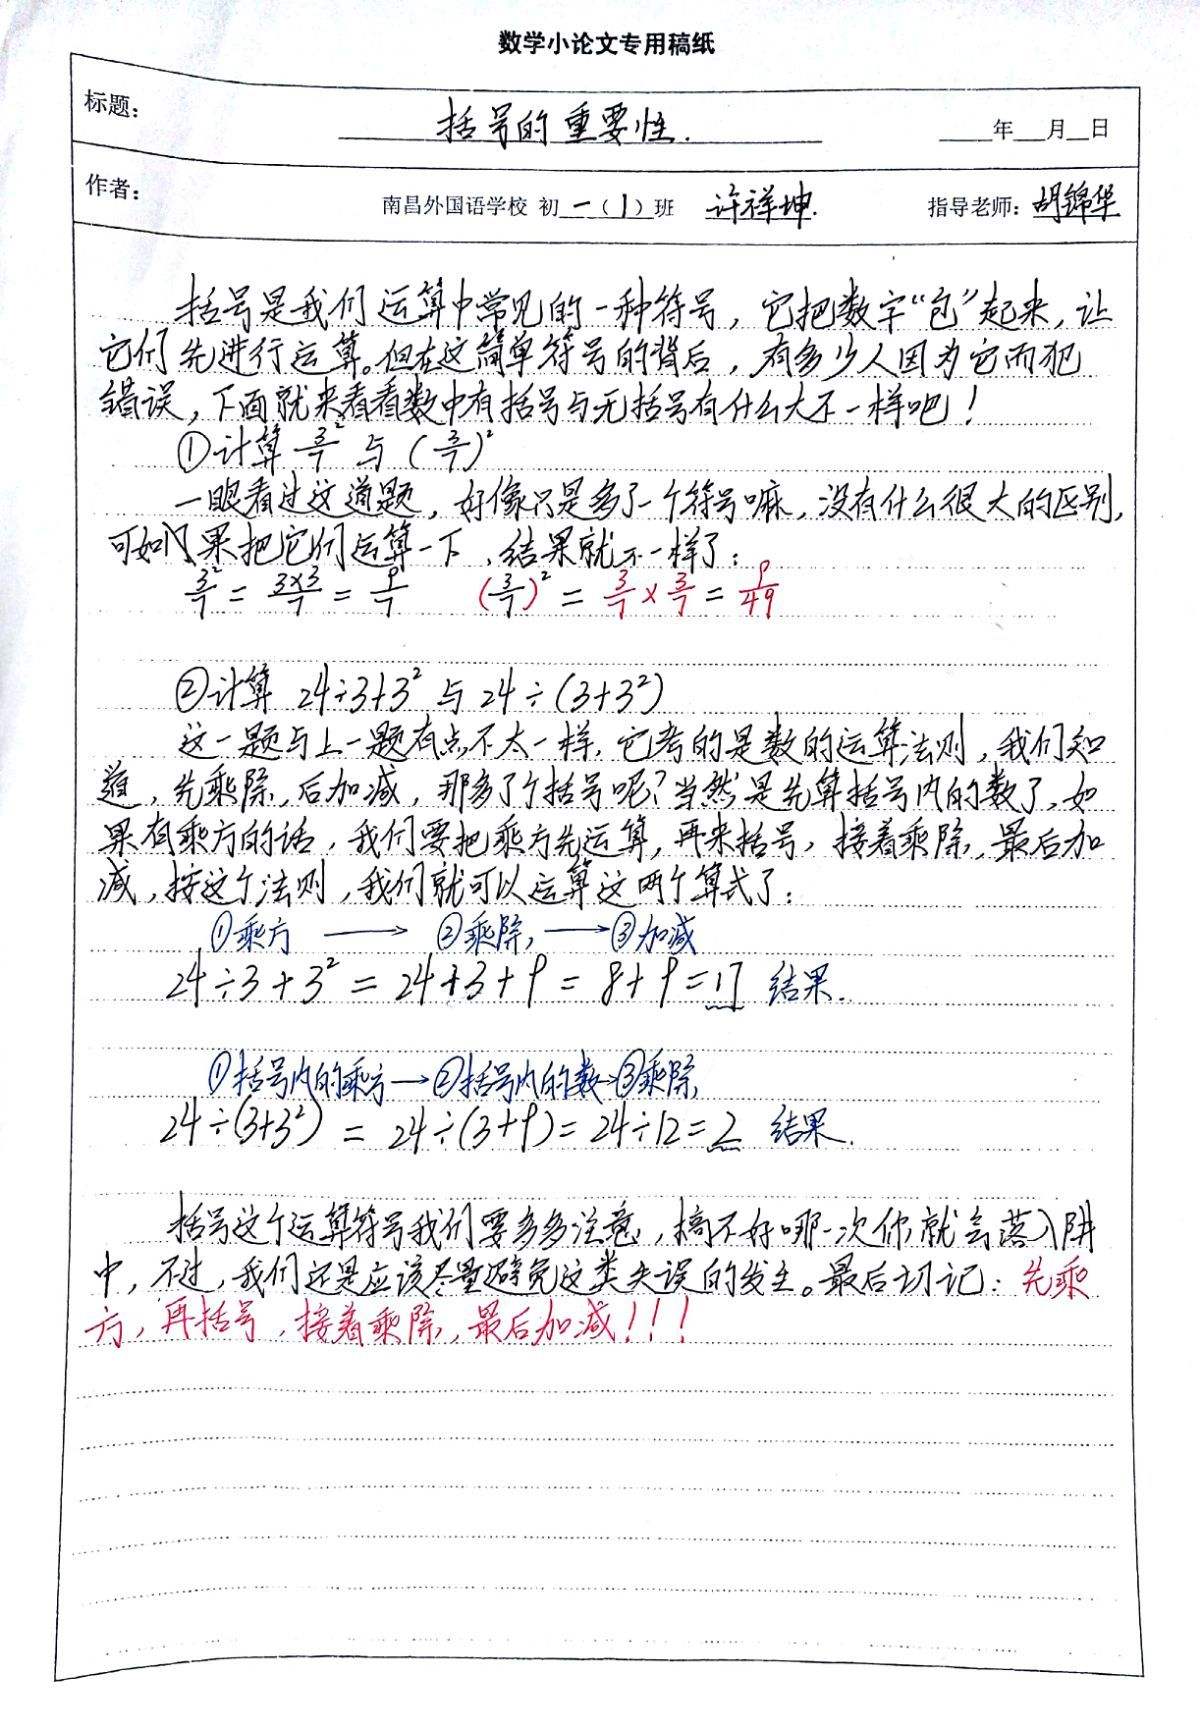 数学小论文专用稿纸
标题：
括号的重要性.
年 月 日
作者：
南昌外国语学校 初一(1)班 许祥坤. 指导老师：胡锦华
括号是我们运算中常见的一种符号，它把数字“包”起来，让
它们先进行运算。但在这简单符号的背后，有多少人因为它而犯
错误，下面就来看看数中有括号与无括号有什么大不一样吧！
①计算 3²/7 与 (3/7)²
一眼看过这道题，好像只是多了个符号嘛，没有什么很大的区别，
可如果把它们运算一下，结果就不一样了：
3²/7 = 3×3/7 = 9/7 (3/7)² = 3/7 × 3/7 = 9/49
②计算 24÷3+3² 与 24÷(3+3²)
这一题与上一题有点不太一样，它考的是数的运算法则，我们知
道，先乘除，后加减，那多了个括号呢？当然是先算括号内的数了，如
果有乘方的话，我们要把乘方先运算，再来括号，接着乘除，最后加
减，按这个法则，我们就可以运算这两个算式了：
①乘方 → ②乘除， → ③加减
24÷3+3² = 24÷3+9 = 8+9 = 17 结果.
①括号内的乘方→②括号内的数→③乘除
24÷(3+3²) = 24÷(3+9) = 24÷12 = 2 结果.
括号这个运算符号我们要多多注意，搞不好哪一次你就会落入阱
中，不过，我们还是应该尽量避免这类失误的发生。最后切记：先乘
方，再括号，接着乘除，最后加减！！！